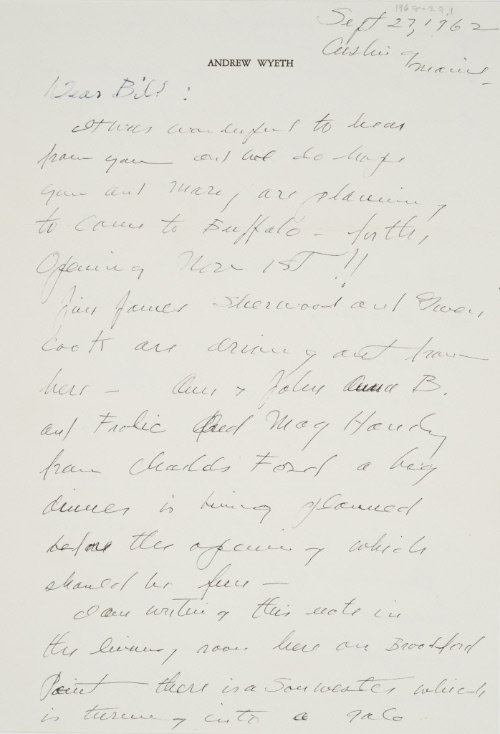 Sept 27, 1962
Cushing
Maine
ANDREW WYETH
Dear Bill:
It was wonderful to hear
from you and we do hope
you and Mary are planning
to come to Buffalo - for the
opening Nov 1ST !!
Jim James Sherwood and Gwen
Cook are driving out from
here - Ann & John Anna B.
and Frolic and Mag Handy
from Chadds Ford a big
dinner is being planned
before the opening which
should be fun -
I am writing this note in
the living room here on Broad
Point there is a Souwester which
is turning into a gale